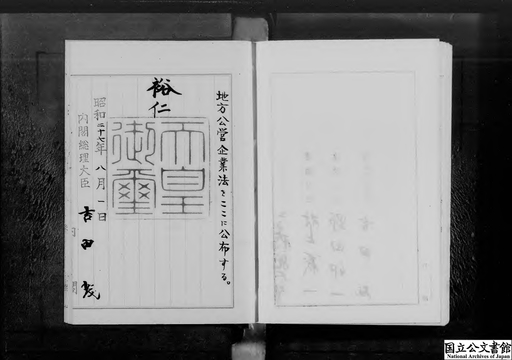 地方公営企業法をここに公布する。
裕仁
天皇
御璽
昭和二十七年八月一日
内閣総理大臣 吉田茂
国立公文書館
National Archives of Japan